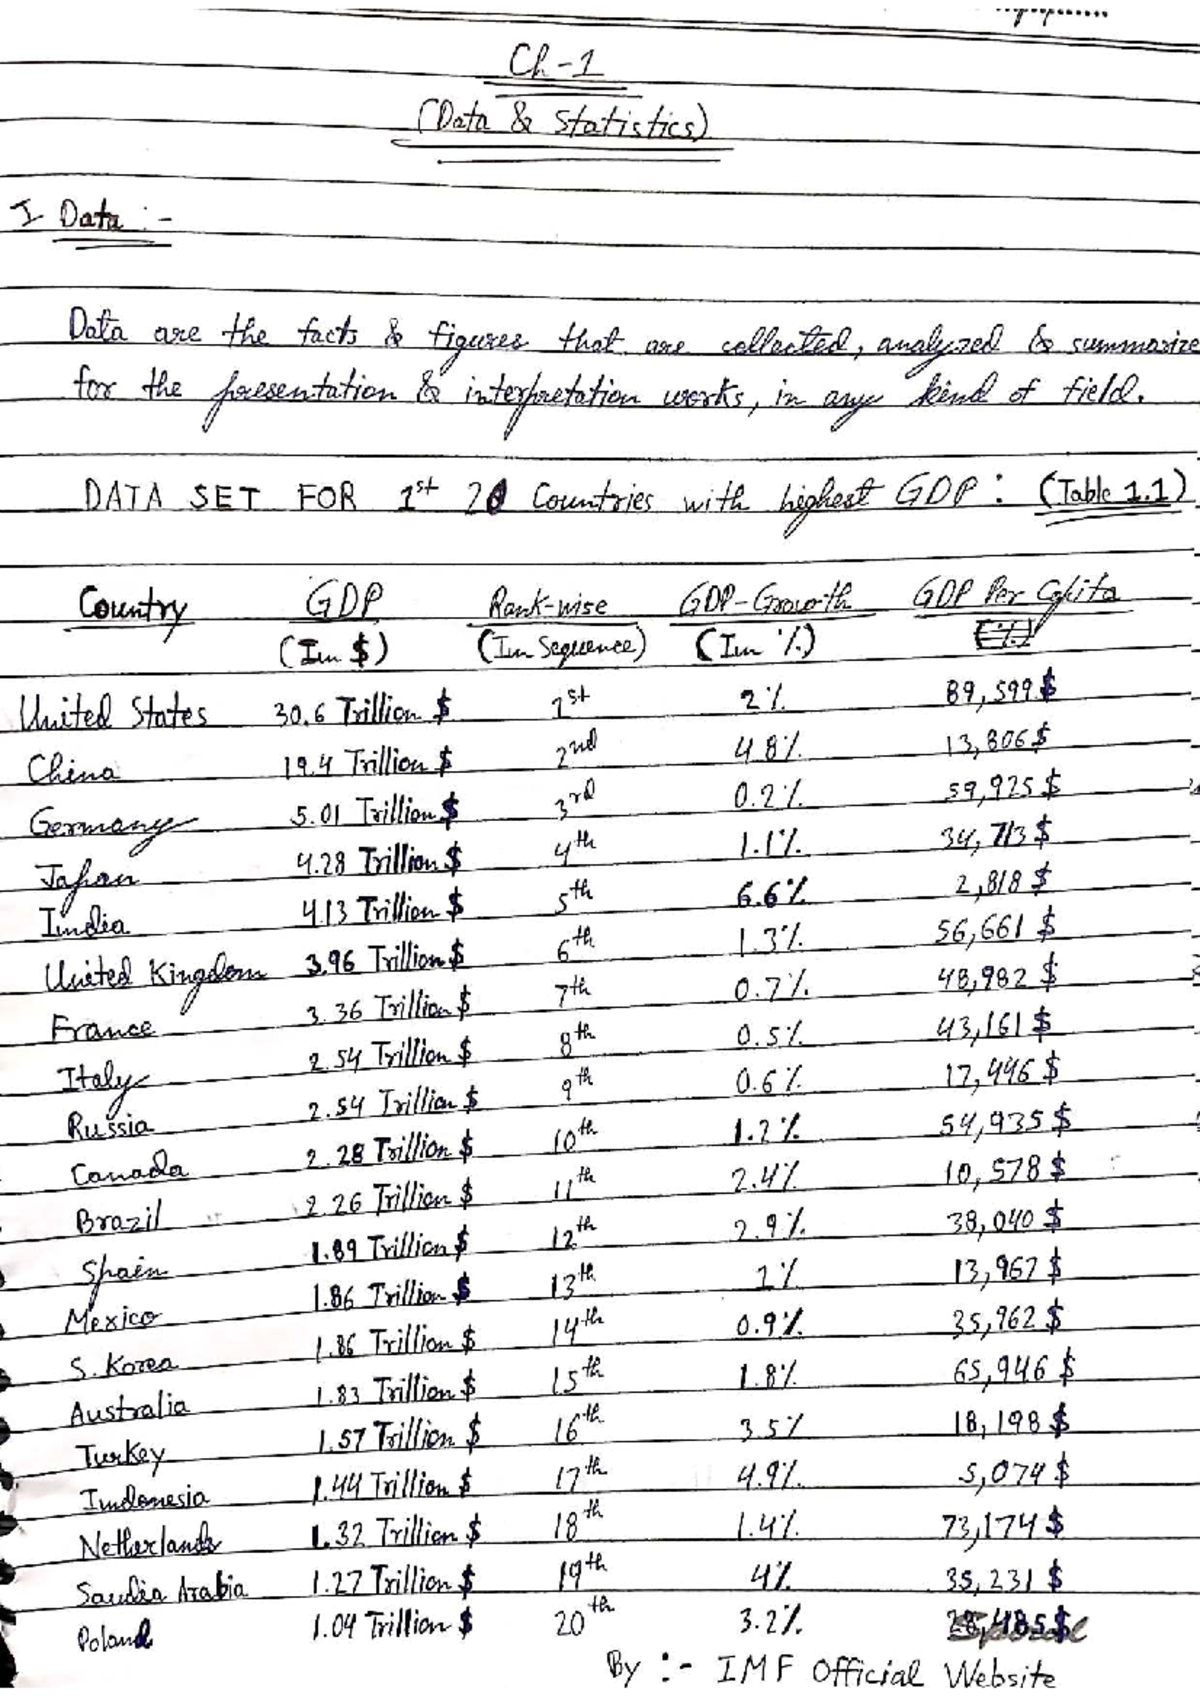 Ch-1
(Data & Statistics)
I Data :-
Data are the facts & figures that are collected, analyzed & summarize
for the presentation & interpretation works, in any kind of field.
DATA SET FOR 1st 20 Countries with highest GDP : (Table 1.1)
Country GDP Rank-wise GDP-Growth GDP Per Capita
(In $) (In Sequence) (In %) (%)
United States 30.6 Trillion $ 1st 2% 89,599 $
China 19.4 Trillion $ 2nd 4.8% 13,806 $
Germany 5.01 Trillion $ 3rd 0.2% 59,925 $
Japan 4.28 Trillion $ 4th 1.1% 34,713 $
India 4.13 Trillion $ 5th 6.6% 2,818 $
United Kingdom 3.96 Trillion $ 6th 1.3% 56,661 $
France 3.36 Trillion $ 7th 0.7% 48,982 $
Italy 2.54 Trillion $ 8th 0.5% 43,161 $
Russia 2.54 Trillion $ 9th 0.6% 17,446 $
Canada 2.28 Trillion $ 10th 1.2% 54,935 $
Brazil 2.26 Trillion $ 11th 2.4% 10,578 $
Spain 1.89 Trillion $ 12th 2.9% 38,040 $
Mexico 1.86 Trillion $ 13th 1% 13,967 $
S. Korea 1.86 Trillion $ 14th 0.9% 35,962 $
Australia 1.83 Trillion $ 15th 1.8% 65,946 $
Turkey 1.57 Trillion $ 16th 3.5% 18,198 $
Indonesia 1.44 Trillion $ 17th 4.9% 5,074 $
Netherlands 1.32 Trillion $ 18th 1.4% 73,174 $
Saudia Arabia 1.27 Trillion $ 19th 4% 35,231 $
Poland 1.04 Trillion $ 20th 3.2% 28,485 $
By :- IMF Official Website